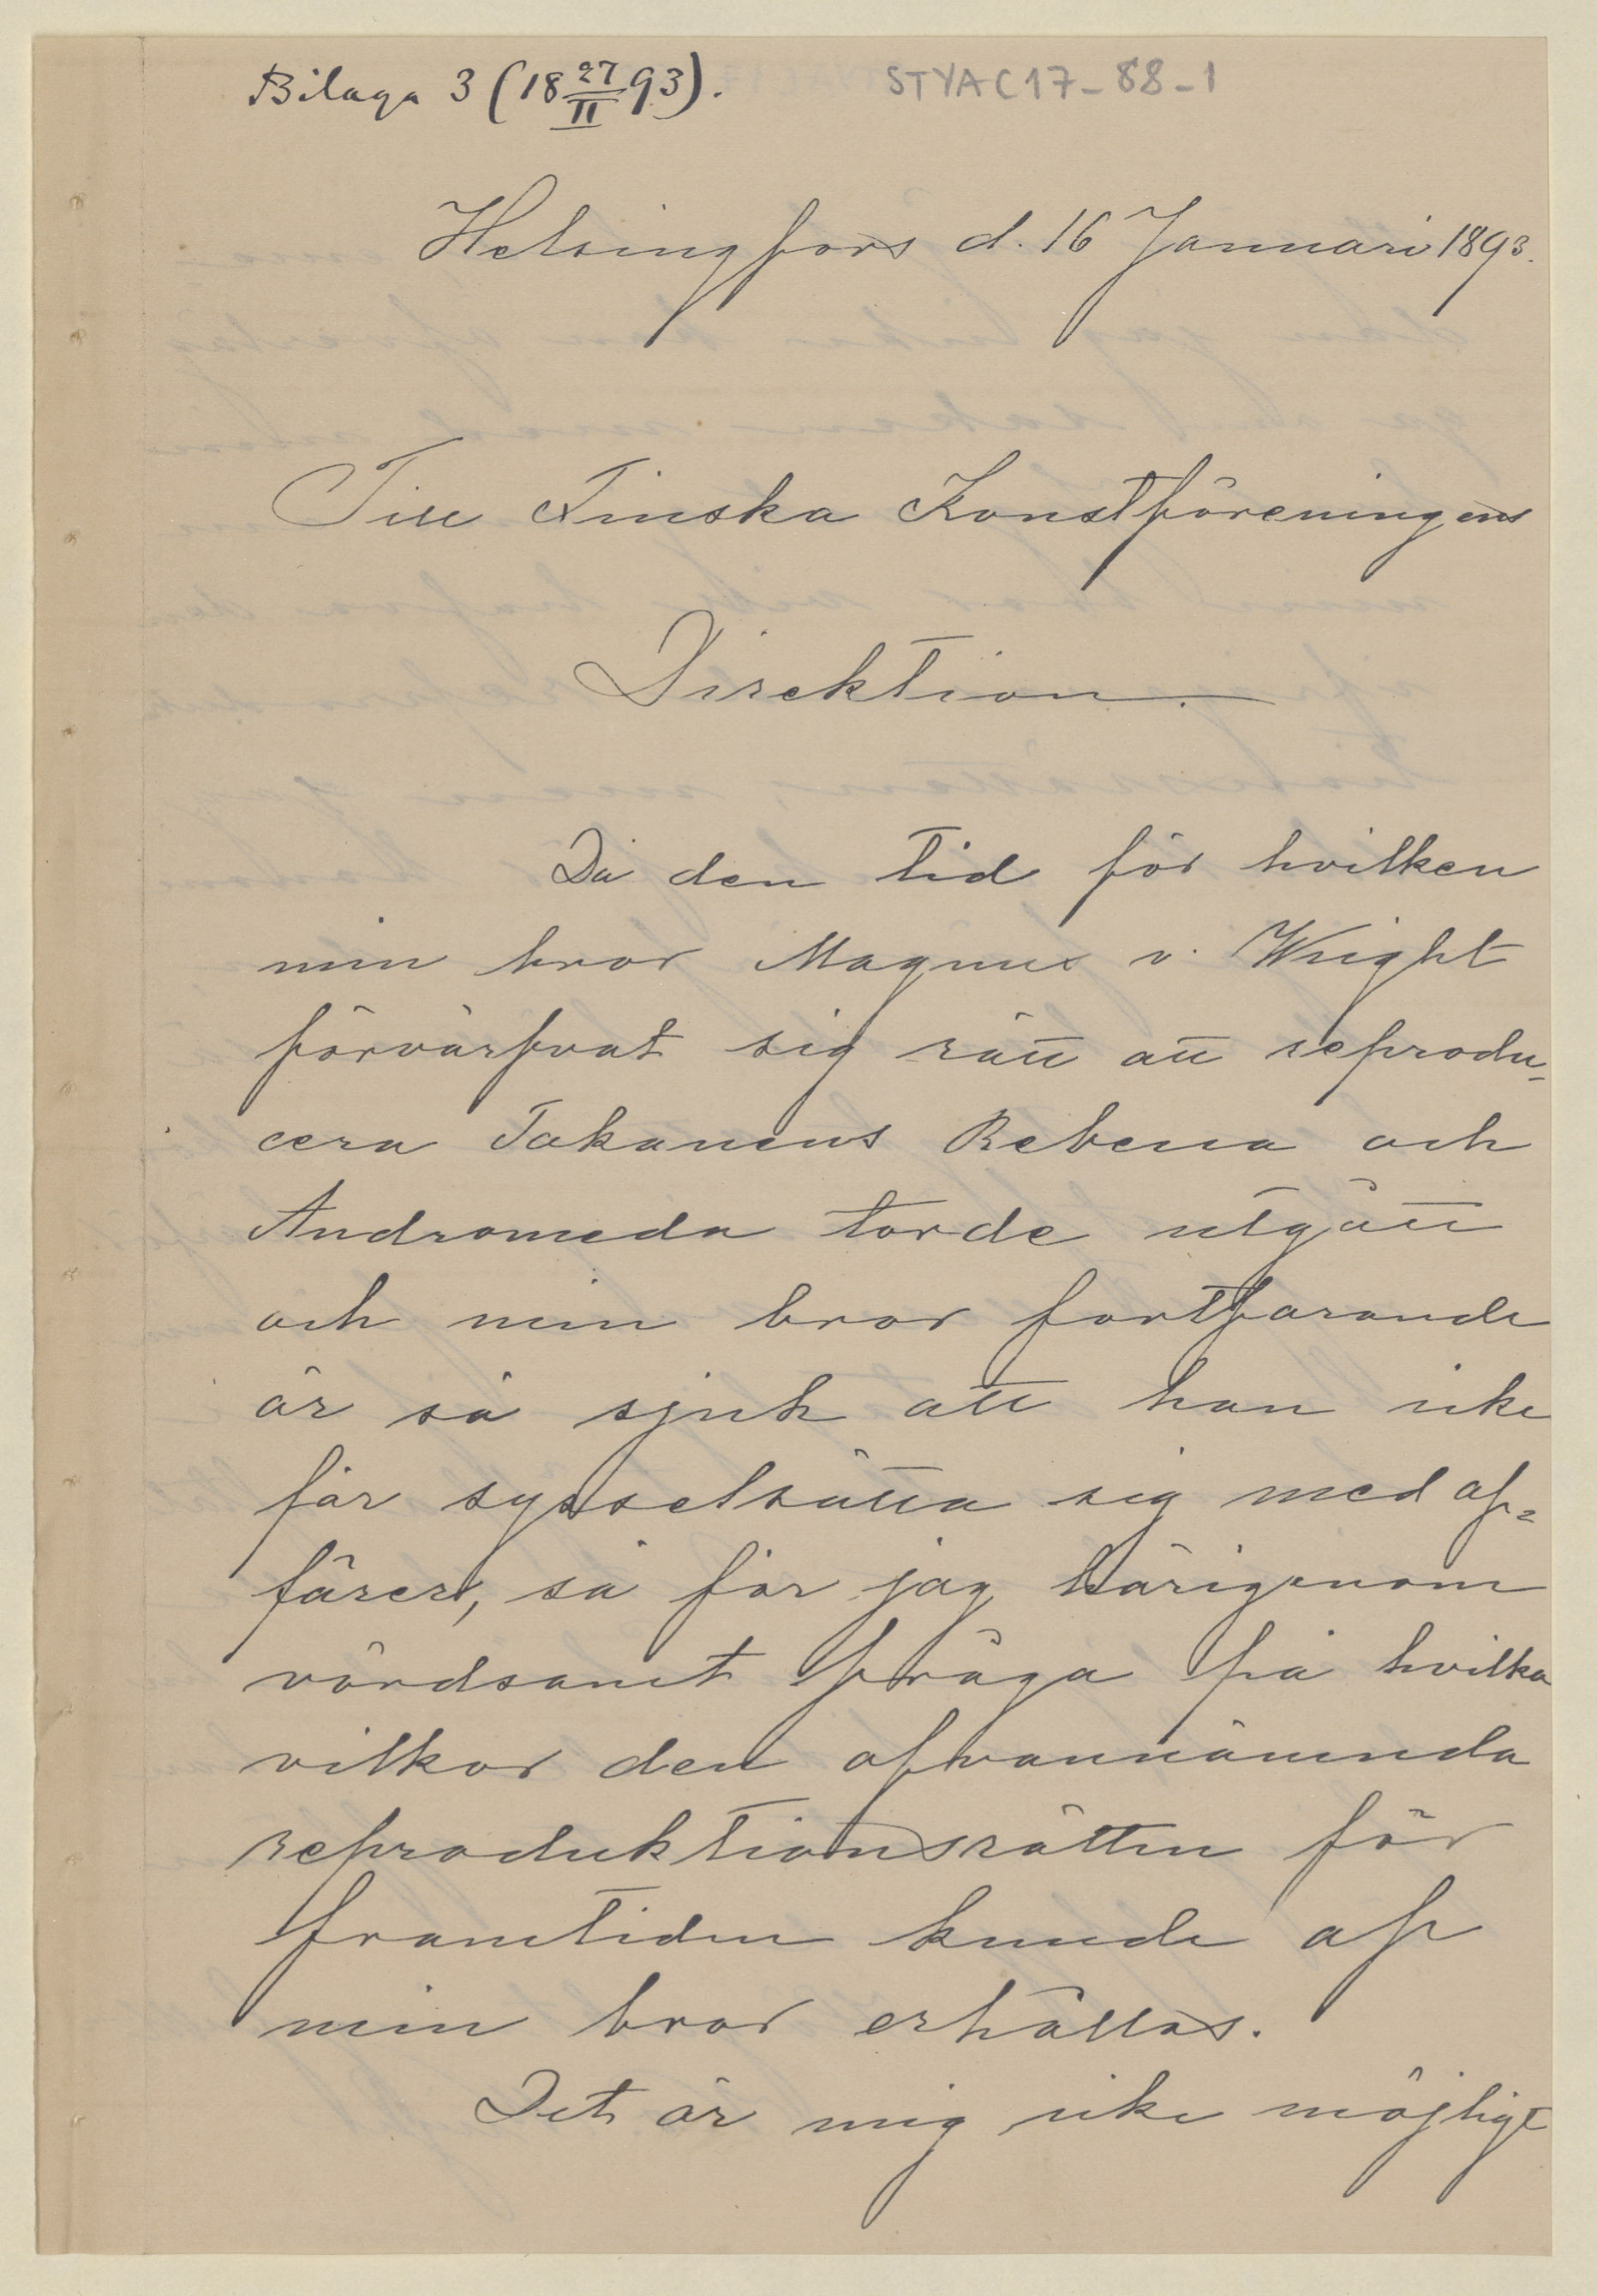 Bilaga 3 (18 27/II 93).
STYA C17-88-1
Helsingfors d. 16 Januari 1893.
Till Finska Konstföreningens
Direktion.
Då den tid för hvilken
min bror Magnus v. Wright
förvärfvat sig rätt att reprodu-
cera Takanens Rebecca och
Andromeda torde utgått
och min bror fortfarande
är så sjuk att han icke
får sysselsätta sig med af-
färer, så får jag härigenom
vördsamt fråga på hvilka
vilkor den ofvannämnda
reproduktionsrätten för
framtiden kunde af
min bror erhållas.
Det är mig icke möjligt